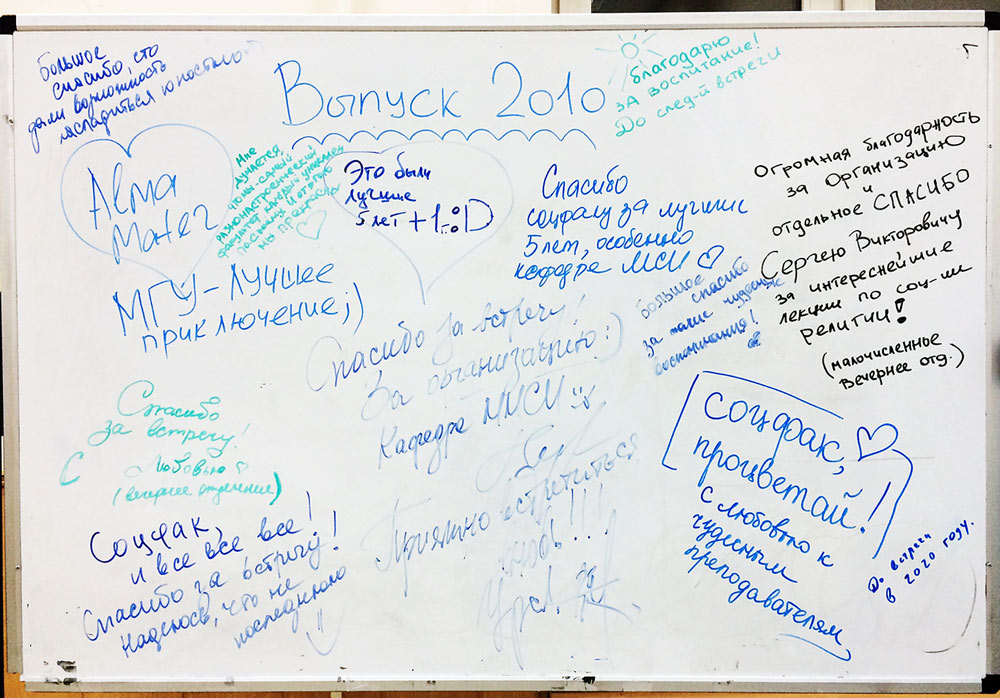 Большое
спасибо, что
дали возможность
насладиться
Выпуск 2010
благодарю
за воспитание!
До след-й встречи
Alma
Mater
МГУ – лучшее
приключение;)
Мне
думается,
что мы – самый
Это были
лучшие
5 лет + 1..:D
Спасибо
соцфаку за лучшие
5 лет, особенно
кафедре МСИ
Огромная благодарность
за организацию
и
отдельное СПАСИБО
Сергею Викторовичу
за интереснейшие
лекции по соц-ии
религии!
(малочисленное
вечернее отд.)
большое
спасибо
за такие чудесные
воспоминания!
Спасибо за встречу!
За организацию:)
Кафедра ММСИ
Спасибо
за встречу!
С
Любовью
(вечернее отделение)
Соцфак,
и все все все!
Спасибо за встречу!
Надеюсь, что не
последняя
Приятно встретиться
вновь!!!
соцфак,
процветай!
с любовью к
чудесным
преподавателям
До встречи
в 2020 году.